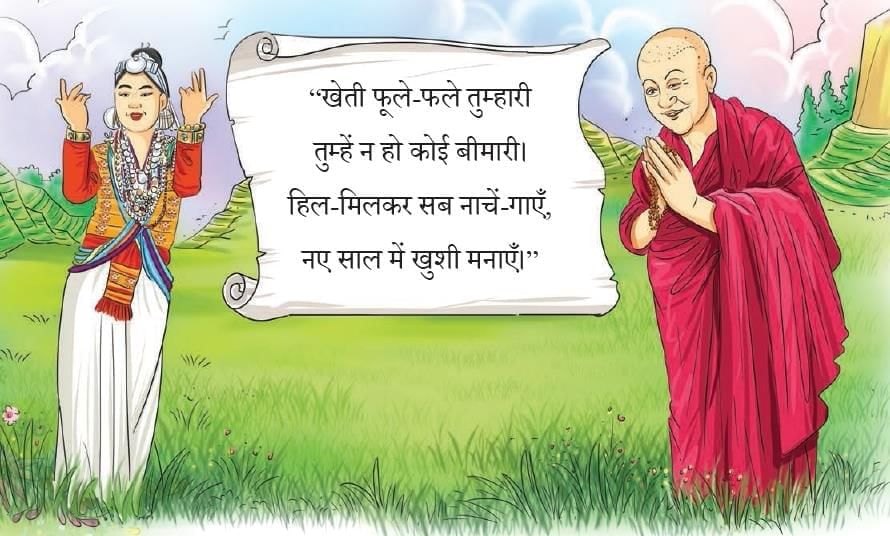 “खेती फूले-फले तुम्हारी
तुम्हें न हो कोई बीमारी।
हिल-मिलकर सब नाचें-गाएँ,
नए साल में खुशी मनाएँ।”